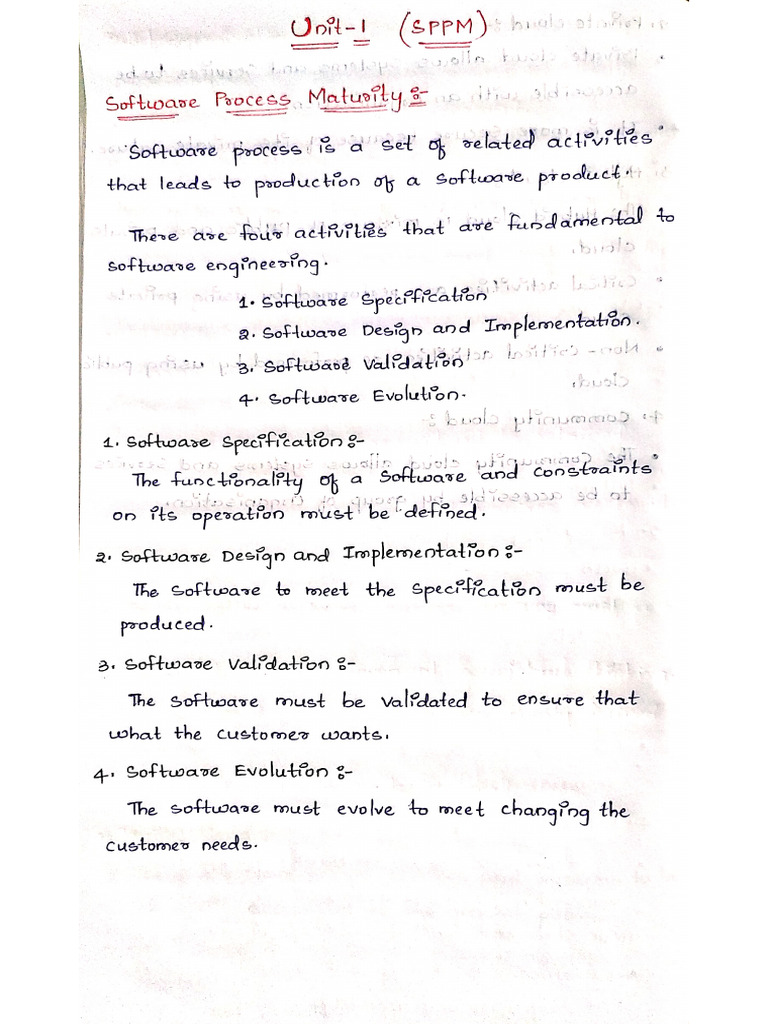 Unit-1 (SPPM)
Software Process Maturity:-
Software process is a set of related activities
that leads to production of a software product.
There are four activities that are fundamental to
software engineering.
1. Software Specification
2. Software Design and Implementation.
3. Software Validation
4. Software Evolution.
1. Software Specification:-
The functionality of a software and constraints
on its operation must be defined.
2. Software Design and Implementation:-
The software to meet the specification must be
produced.
3. Software Validation:-
The software must be validated to ensure that
what the customer wants.
4. Software Evolution:-
The software must evolve to meet changing the
customer needs.